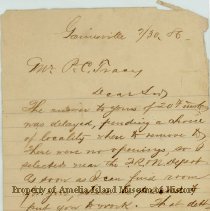 Gainesville 7/30. 86.
Mr. P. C. Tracy
Dear Sir
The answer to yours of 20th inst
was delayed, pending a choice
of locality when to remove to
There were no openings, so I
selected near the F.R.N. Depot
As soon as I can find room
Property of Amelia Island Museum of History
put you to work. That debt